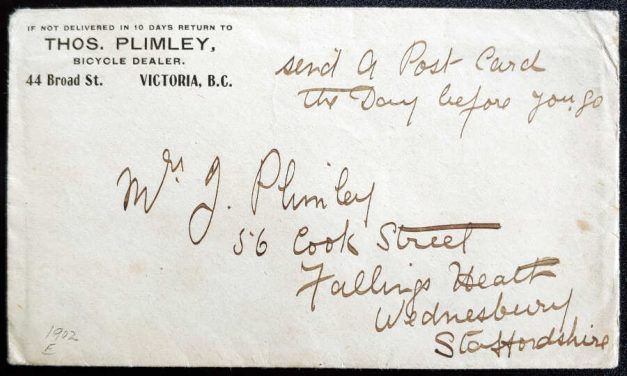 IF NOT DELIVERED IN 10 DAYS RETURN TO
THOS. PLIMLEY,
BICYCLE DEALER.
44 Broad St. VICTORIA, B.C.
send A Post Card
the Day before you go
Mrs J. Plimley
56 Cook Street
Fallings Heath
Wednesbury
Staffordshire
1902
E